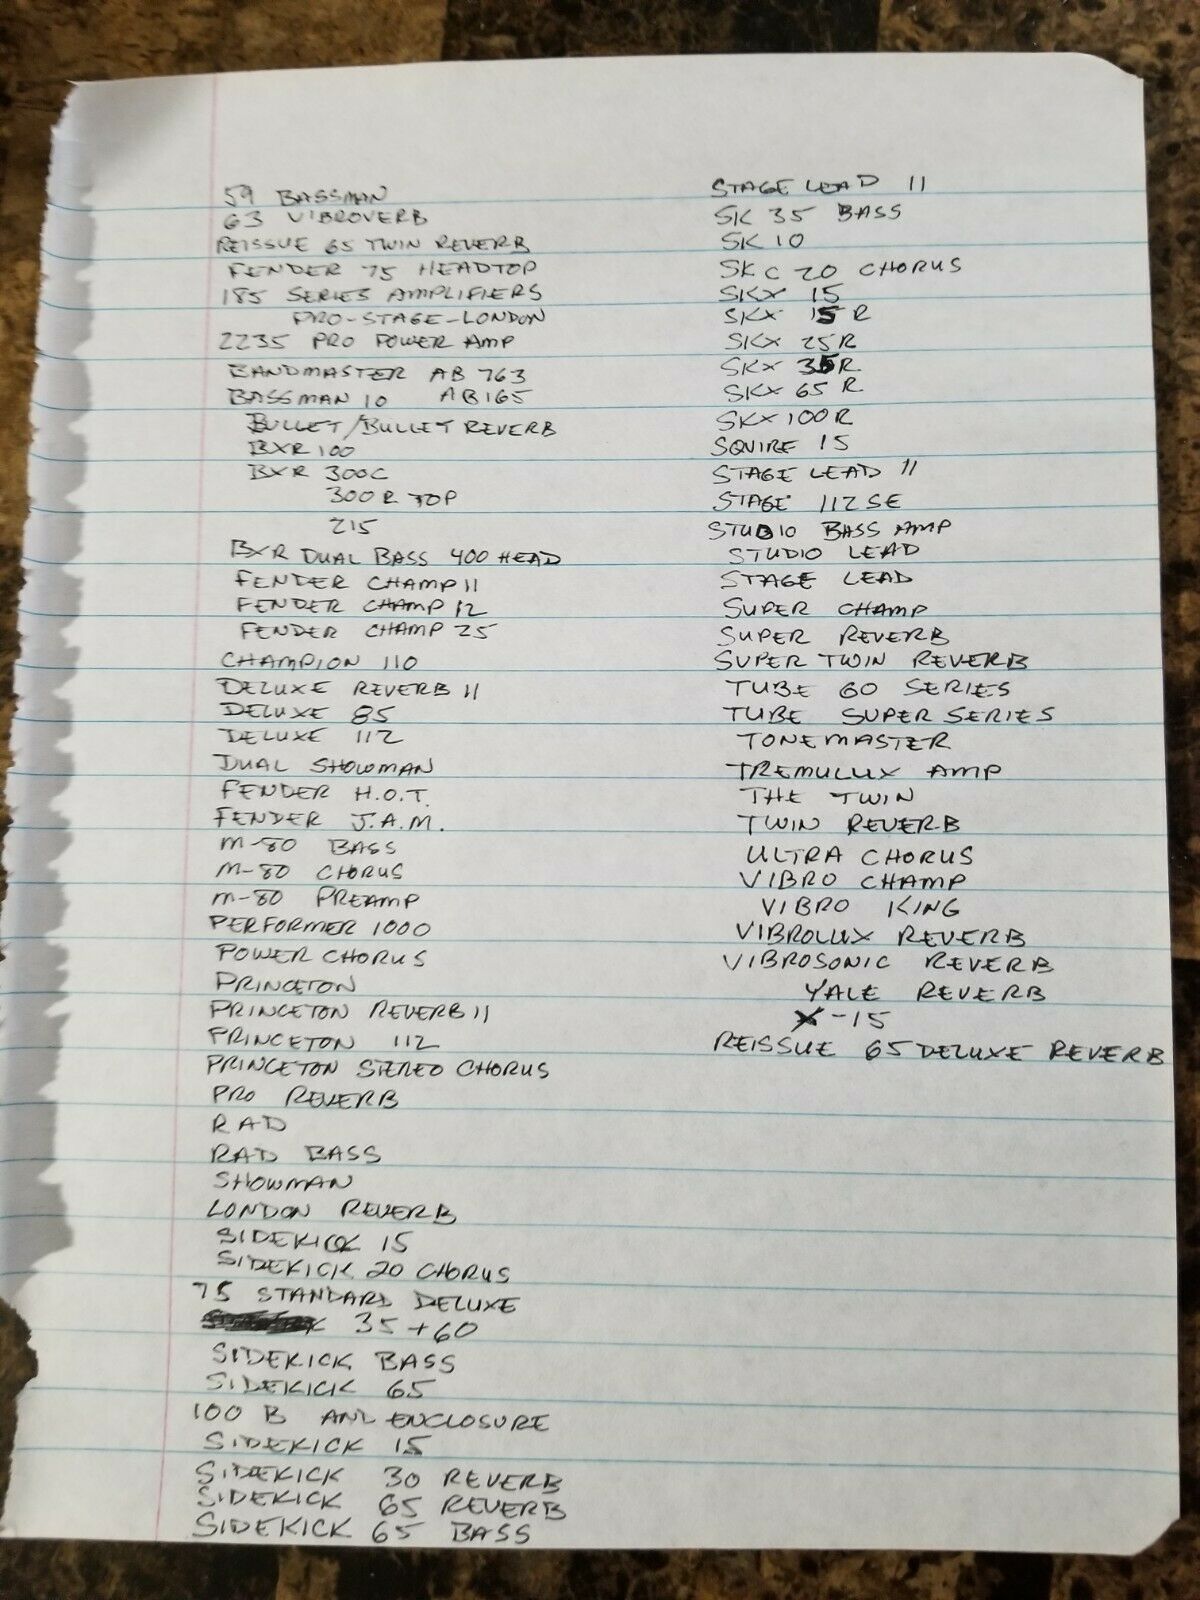 59 BASSMAN
63 VIBROVERB
REISSUE 65 TWIN REVERB
FENDER 75 HEADTOP
185 SERIES AMPLIFIERS
PRO-STAGE-LONDON
2235 PRO POWER AMP
BANDMASTER AB 763
BASSMAN 10 AB165
BULLET/BULLET REVERB
BXR 100
BXR 300C
300R TOP
215
BXR DUAL BASS 400 HEAD
FENDER CHAMP 11
FENDER CHAMP 12
FENDER CHAMP 25
CHAMPION 110
DELUXE REVERB 11
DELUXE 85
DELUXE 112
DUAL SHOWMAN
FENDER H.O.T.
FENDER J.A.M.
M-80 BASS
M-80 CHORUS
M-80 PREAMP
PERFORMER 1000
POWER CHORUS
PRINCETON
PRINCETON REVERB 11
PRINCETON 112
PRINCETON STEREO CHORUS
PRO REVERB
RAD
RAD BASS
SHOWMAN
LONDON REVERB
SIDEKICK 15
SIDEKICK 20 CHORUS
75 STANDARD DELUXE
35 + 60
SIDEKICK BASS
SIDEKICK 65
100 B AND ENCLOSURE
SIDEKICK 15
SIDEKICK 30 REVERB
SIDEKICK 65 REVERB
SIDEKICK 65 BASS
STAGE LEAD 11
SK 35 BASS
SK 10
SKC 20 CHORUS
SKX 15
SKX 15 R
SKX 25R
SKX 35R
SKX 65 R
SKX 100R
SQUIRE 15
STAGE LEAD 11
STAGE 112 SE
STUDIO BASS AMP
STUDIO LEAD
STAGE LEAD
SUPER CHAMP
SUPER REVERB
SUPER TWIN REVERB
TUBE 60 SERIES
TUBE SUPER SERIES
TONEMASTER
TREMULUX AMP
THE TWIN
TWIN REVERB
ULTRA CHORUS
VIBRO CHAMP
VIBRO KING
VIBROLUX REVERB
VIBROSONIC REVERB
YALE REVERB
X-15
REISSUE 65 DELUXE REVERB